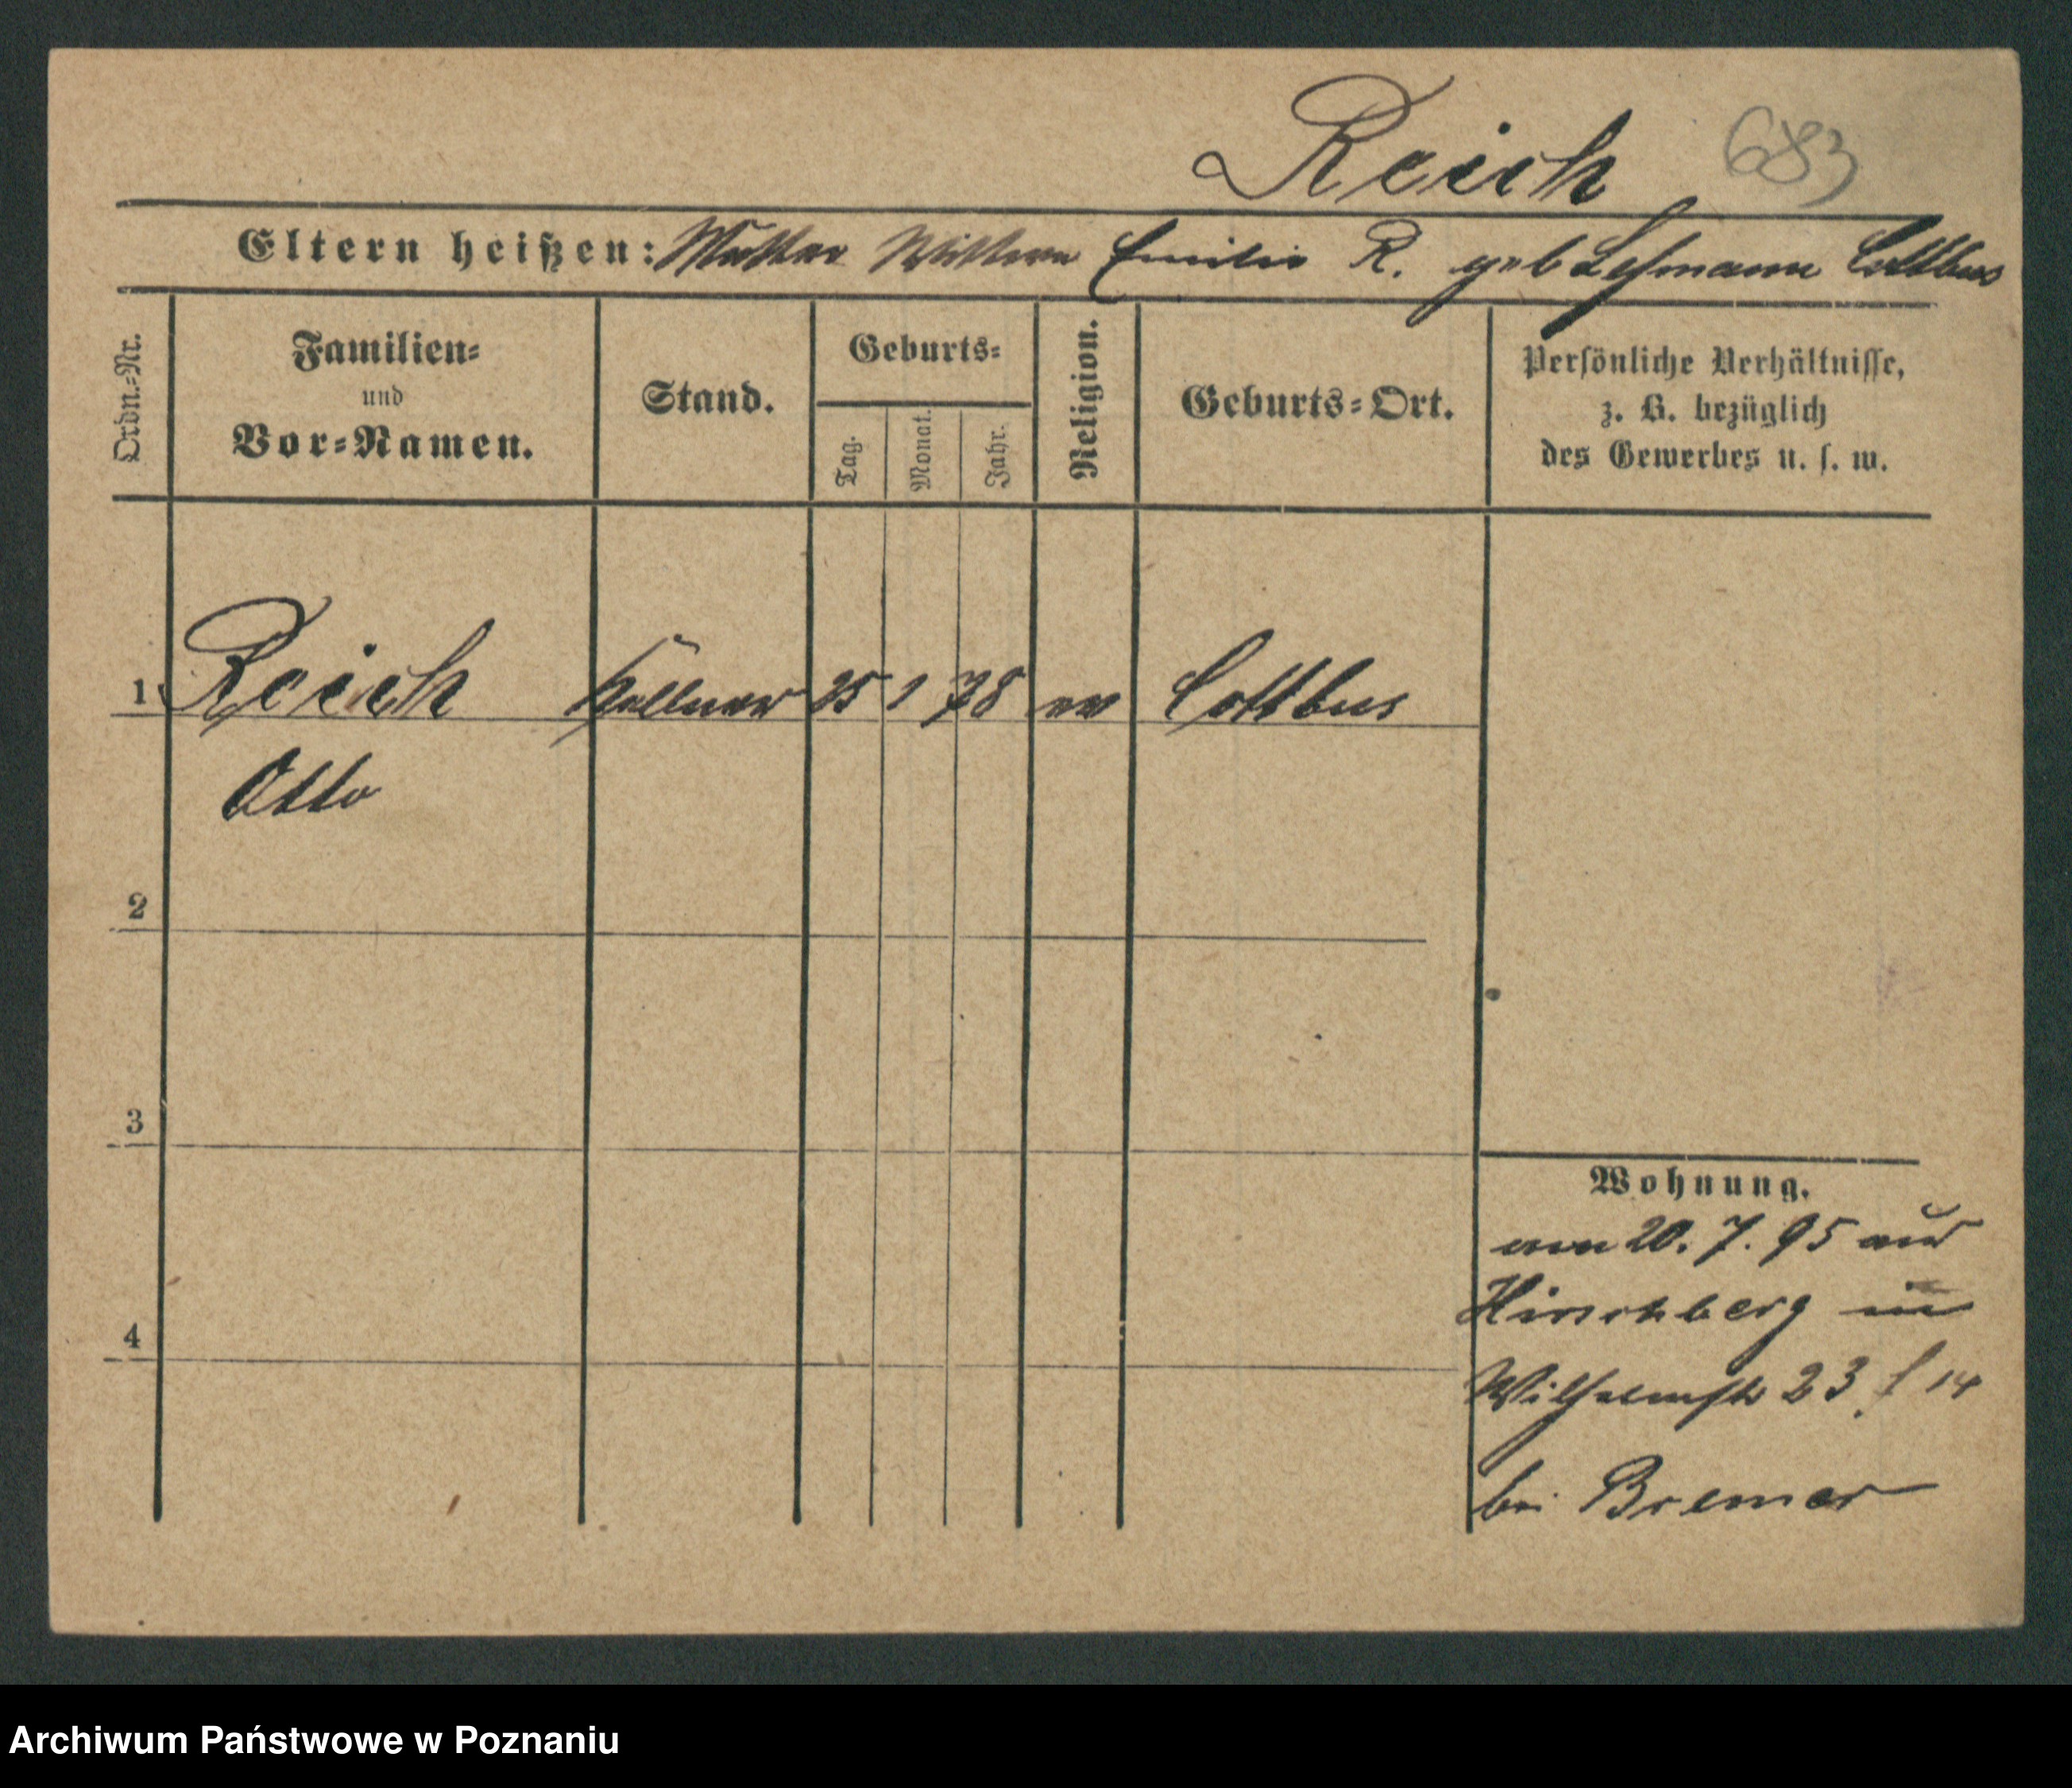 Reich 683
Eltern heißen: Mutter Wittwe Emilie R. geb Lehmann Cottbus
Ordn.-Nr.
Familien-
und
Vor-Namen.
Stand.
Geburts-
Tag.
Monat.
Jahr.
Religion.
Geburts-Ort.
Persönliche Verhältnisse,
z. B. bezüglich
des Gewerbes u. s. w.
1 Reich Kellner 25 1 78 ev Cottbus
Otto
2
3
4
Wohnung.
am 20. 7. 95 aus
Hirschberg in
Wilhelmstr 23 14
bei Bremer
Archiwum Państwowe w Poznaniu